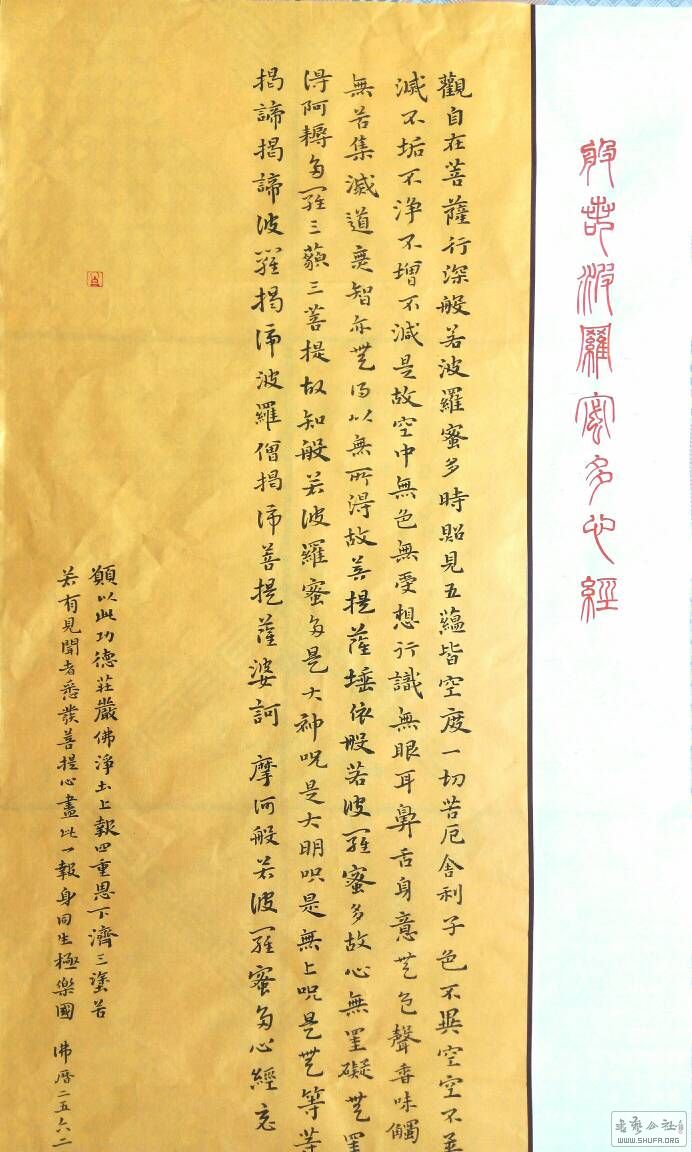 般若波羅蜜多心經
觀自在菩薩行深般若波羅蜜多時照見五蘊皆空度一切苦厄舍利子色不異空空不
滅不垢不淨不增不減是故空中無色無受想行識無眼耳鼻舌身意無色聲香味觸
無苦集滅道無智亦無得以無所得故菩提薩埵依般若波羅蜜多故心無罣礙無罣
得阿耨多羅三藐三菩提故知般若波羅蜜多是大神呪是大明呪是無上呪是無等等
揭諦揭諦波羅揭諦波羅僧揭諦菩提薩婆訶 摩訶般若波羅蜜多心經
願以此功德莊嚴佛淨土上報四重恩下濟三塗苦
若有見聞者悉發菩提心盡此一報身同生極樂國 佛曆二五六二
WWW.SHUFA.ORG